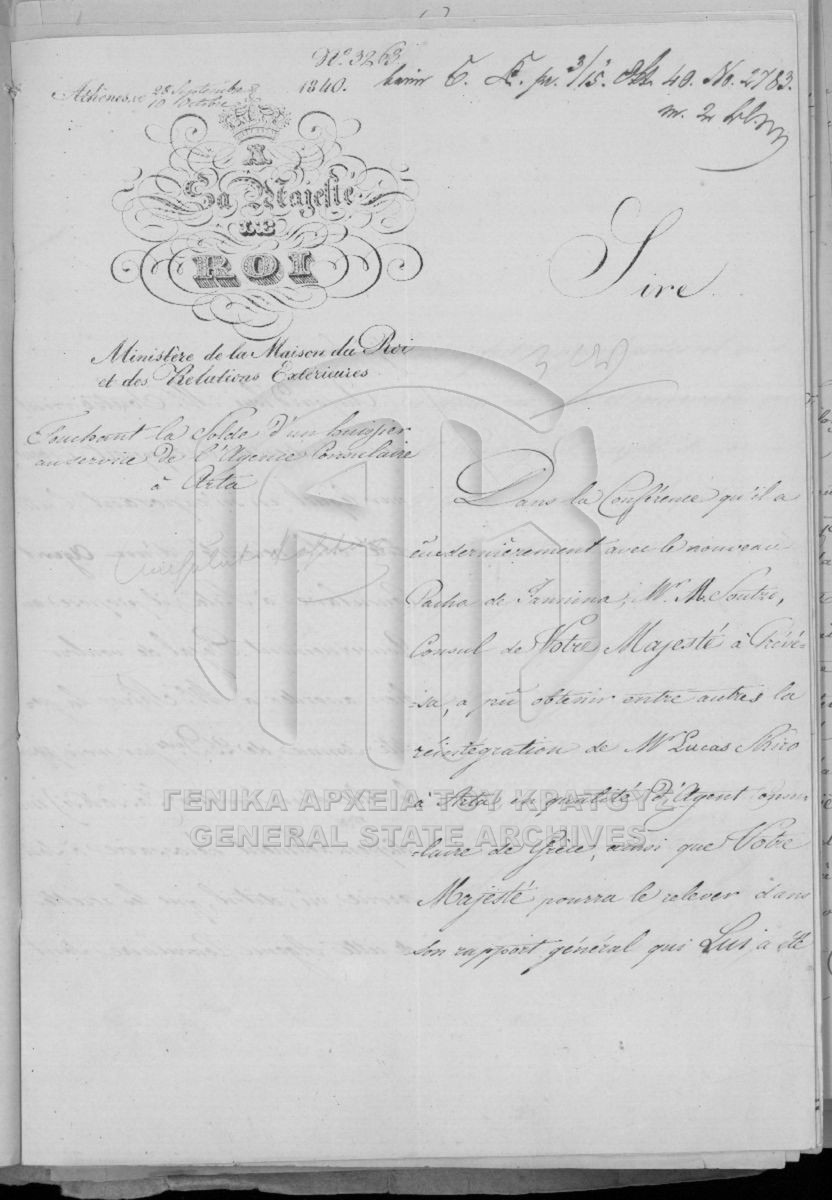 N° 3263
Athènes, le 28 Septembre / 10 Octobre 1840.
pr. 3/15. Okt. 40. No. 2783.
m. 2
A
Sa Majesté
LE
ROI
Sire
Ministère de la Maison du Roi
et des Relations Extérieures
Touchant la Solde d'un huissier
au service de l'Agence Consulaire
à Arta
Dans la Conférence qu'il a
eue dernièrement avec le nouveau
Pacha de Jannina, Mr. M. Soutzo,
Consul de Votre Majesté à Prévé-
sa, a pû obtenir entre autres la
réintégration de Mr Lucas
à Arta en qualité d'Agent Consu-
laire de Grèce, ainsi que Votre
Majesté pourra le relever dans
son rapport général qui Lui a été
ΓΕΝΙΚΑ ΑΡΧΕΙΑ ΤΟΥ ΚΡΑΤΟΥΣ
GENERAL STATE ARCHIVES